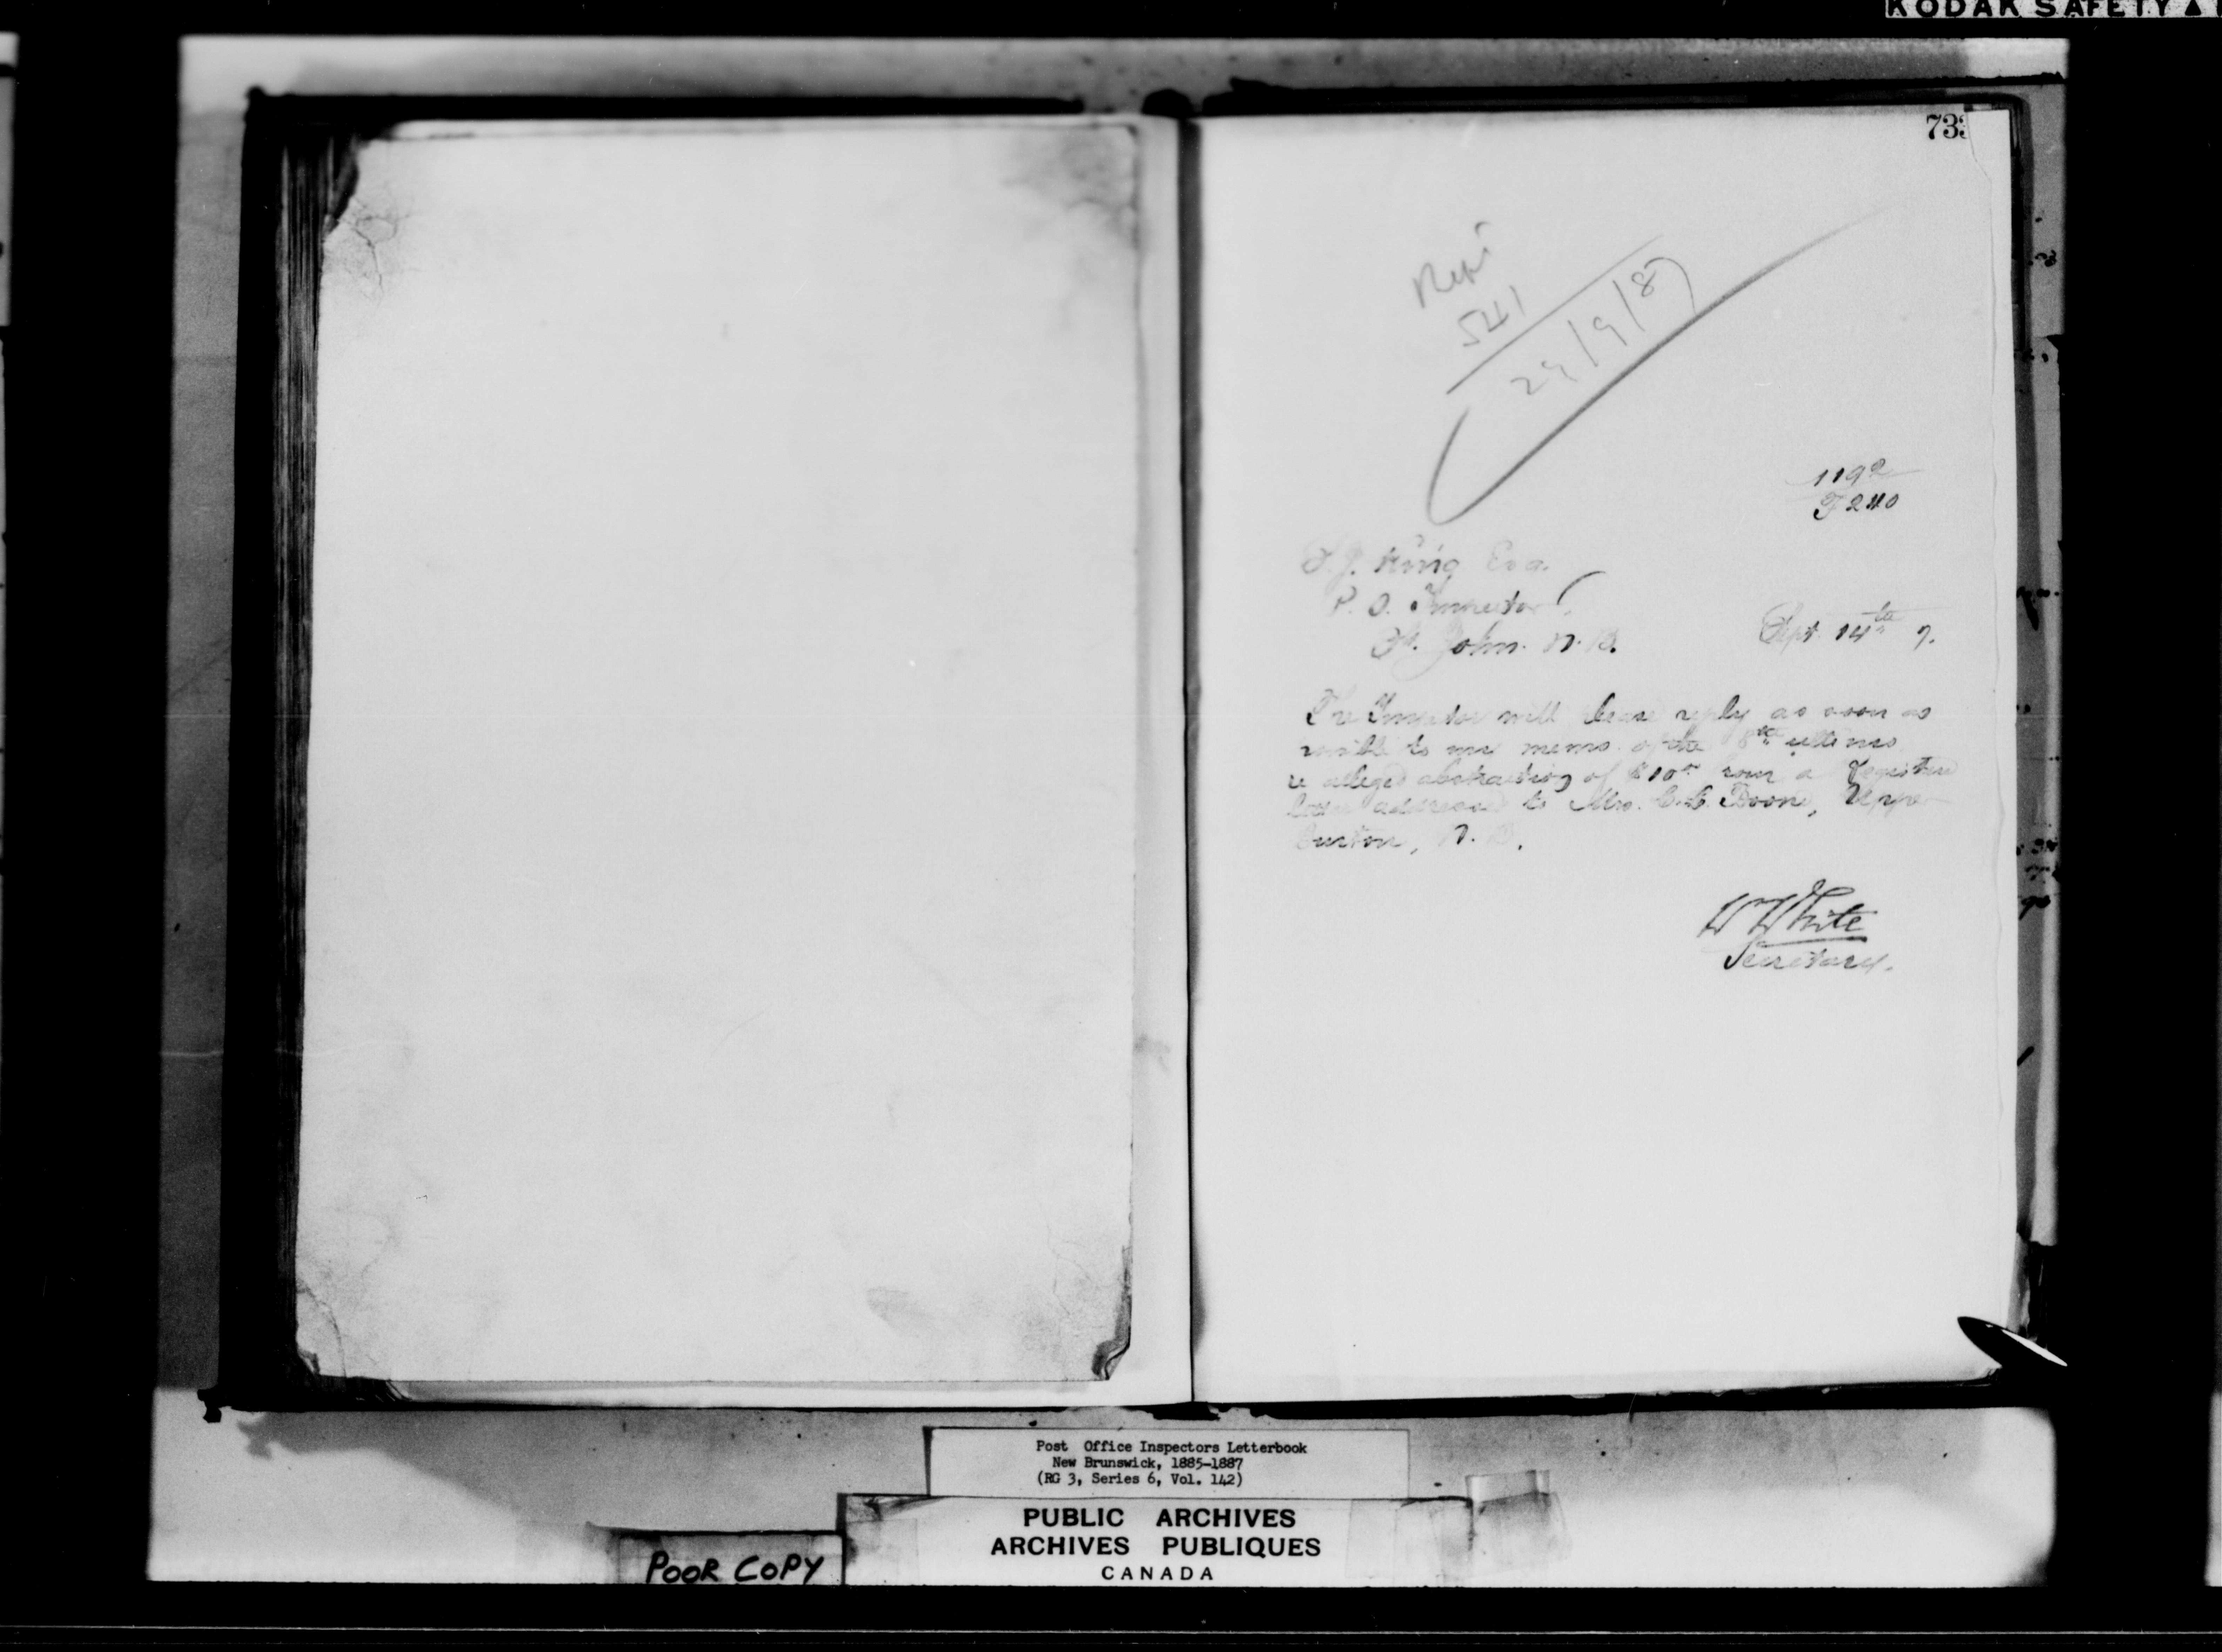 KODAK SAFETY
733
Rep'd
541
29/9/87
1192
F 240
S. J. King Esq.
P. O. Inspector
St. John. N. B.
Sept 14th 7.
The Inspector will please reply as soon as
possible to my memo. of the 8th ultimo
re alleged abstraction of $10.00 from a Registered
letter addressed to Mrs. C. C. Boone, Upper
Burton, N. B.
W White
Secretary.
Post Office Inspectors Letterbook
New Brunswick, 1885-1887
(RG 3, Series 6, Vol. 142)
PUBLIC ARCHIVES
ARCHIVES PUBLIQUES
CANADA
POOR COPY